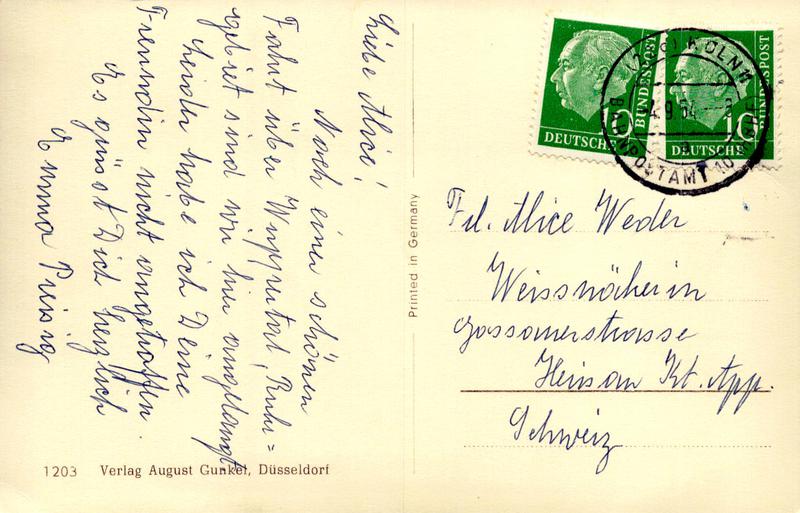 Liebe Alice!
Nach einer schönen
Fahrt über Wuppertal, Ruhr=
gebiet sind wir hier angelangt
Leider habe ich Deine
Freundin nicht angetroffen.
Es grüsst Dich herzlich
Emma Preisig
DEUTSCHE BUNDESPOST
10
DEUTSCHE BUNDESPOST
10
KÖLN
4.9.54
BAHNPOSTAMT 10
Printed in Germany
Frl. Alice Weder
Weissnäherin
Gossauerstrasse
Herisau Kt. App.
Schweiz
1203 Verlag August Gunkel, Düsseldorf